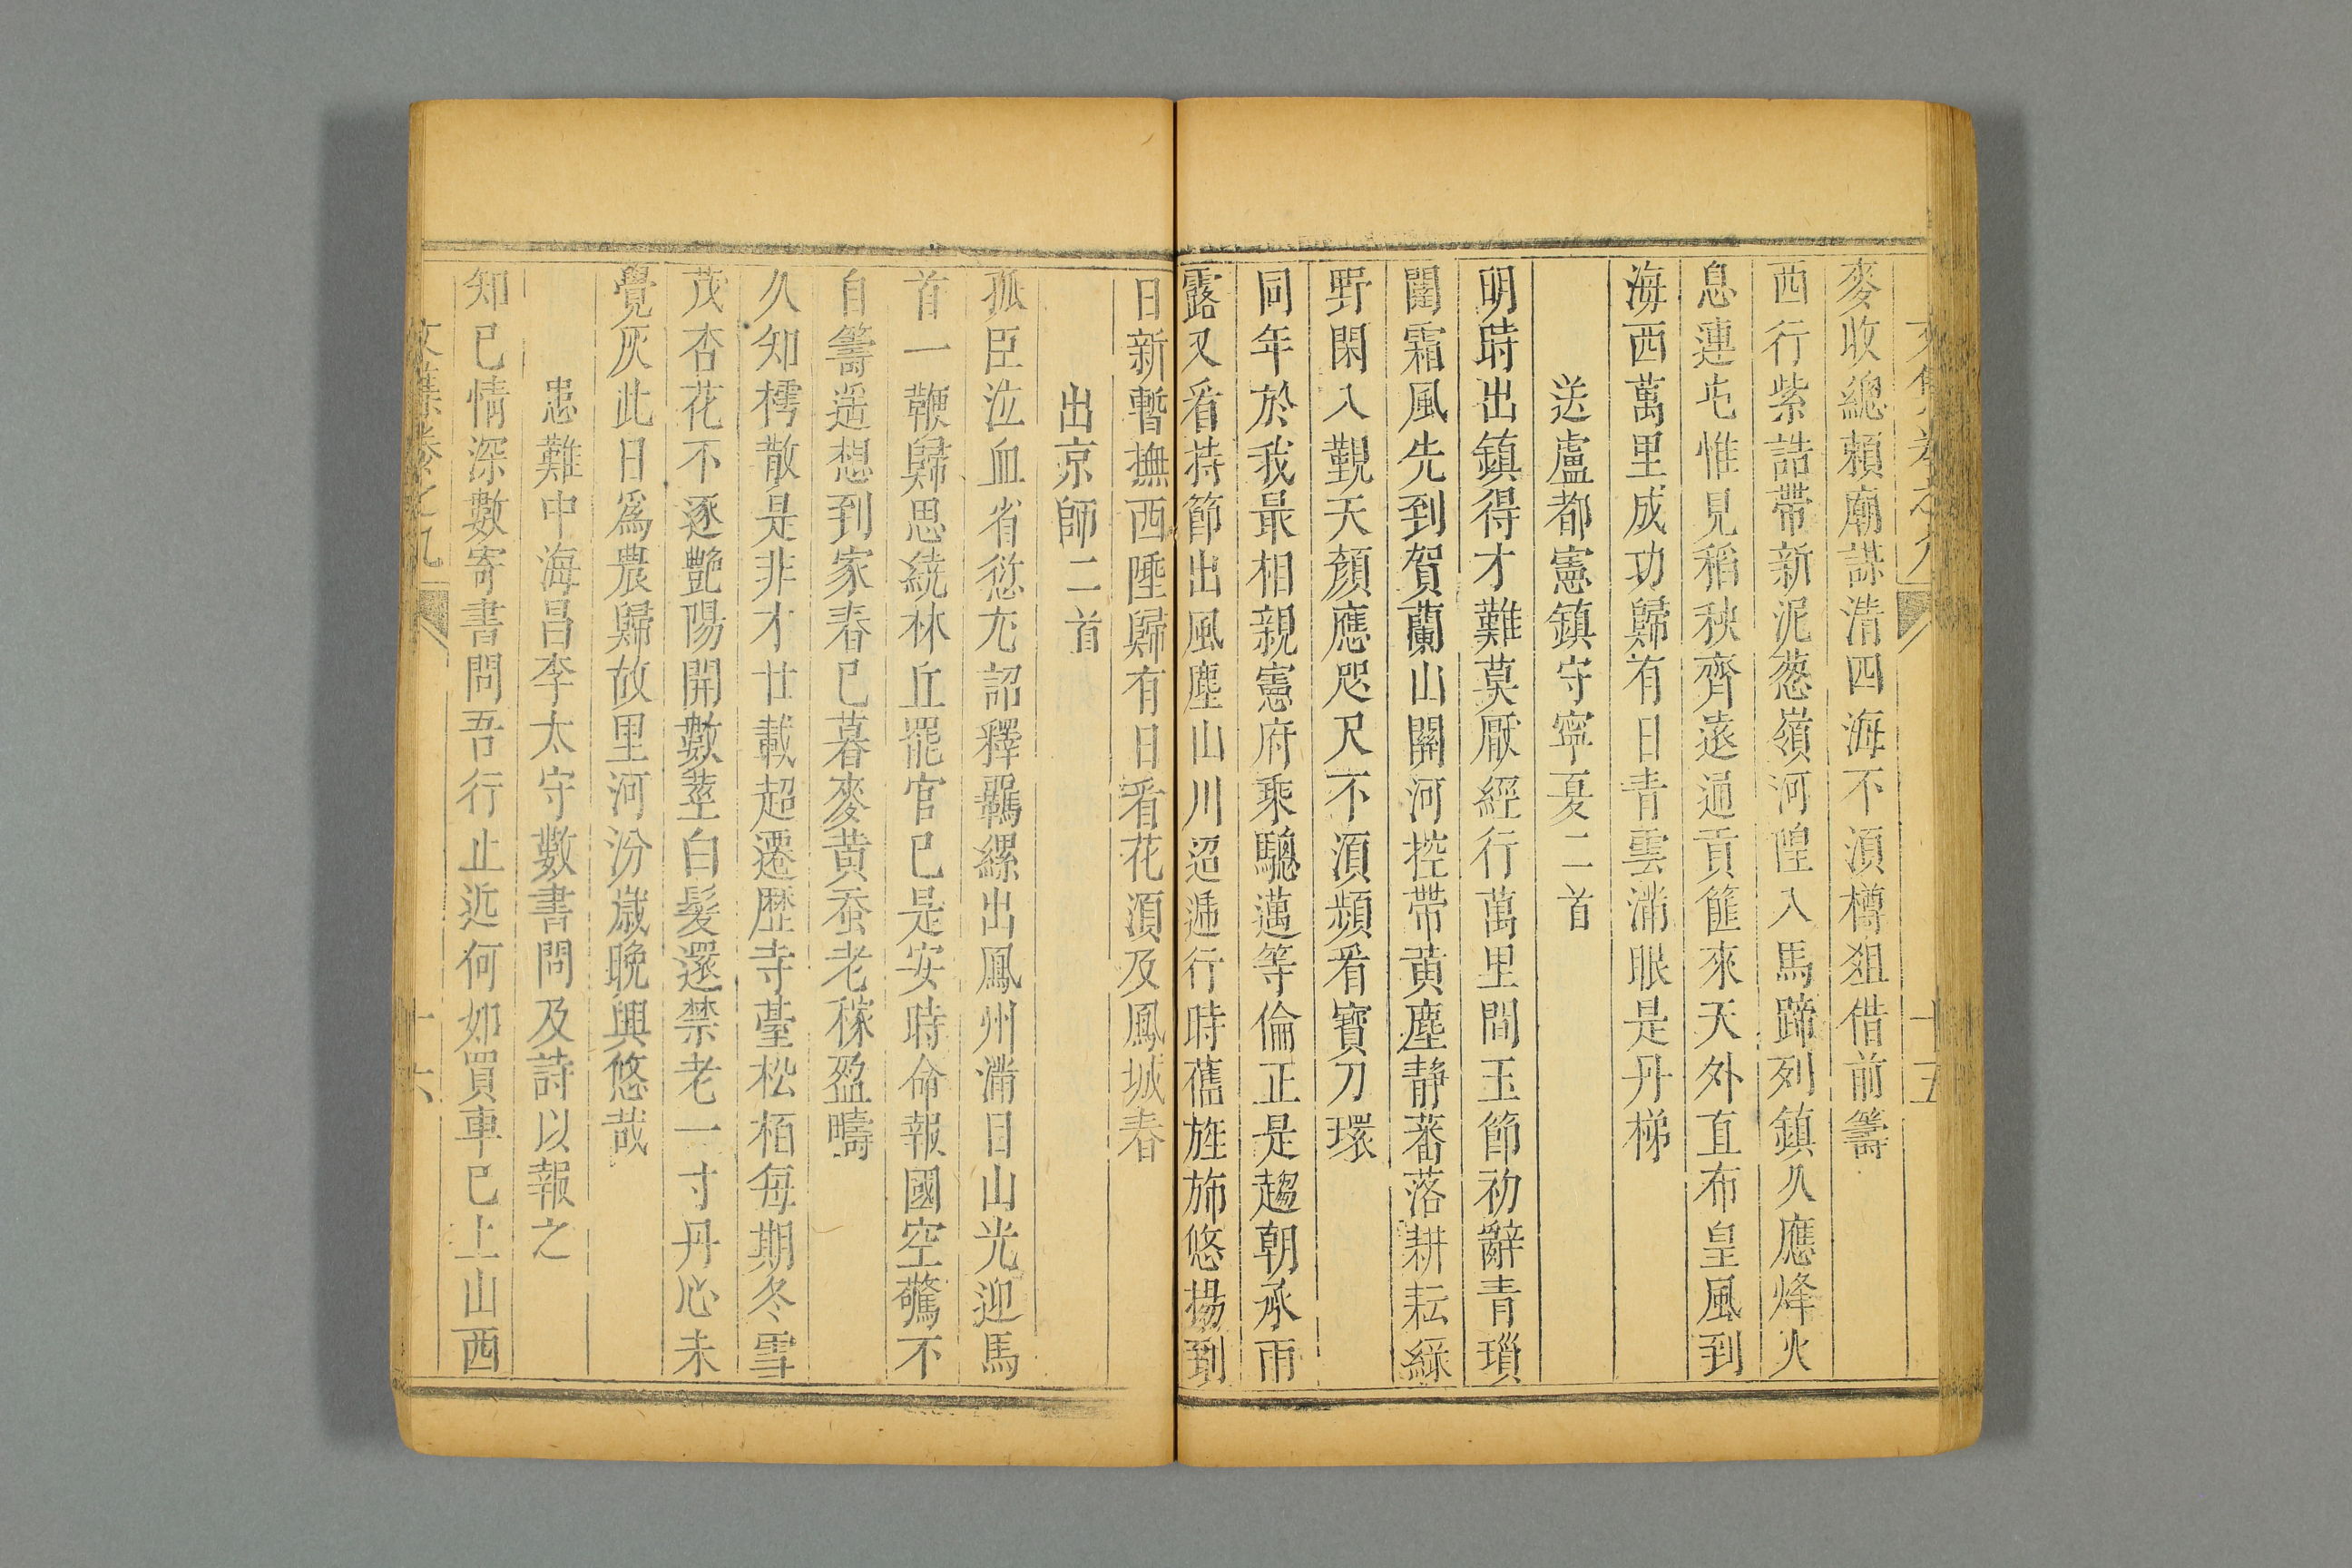 文集卷之九
十五
麥收總賴廟謀清四海不湏樽爼借前籌
西行紫誥帶新泥葱嶺河隍入馬蹄列鎮久應烽火
息連屯惟見稻秧齊遠通貢篚來天外直布皇風到
海西萬里成功歸有日青雲滿眼是丹梯
送盧都憲鎮守寧夏二首
明時出鎮得才難莫厭經行萬里間玉節初辭青瑣
闥霜風先到賀蘭山關河控帶黄塵靜蕃落耕耘綠
野閑入覲天顔應咫尺不湏頻看寶刀環
同年於我最相親憲府乘驄邁等倫正是趨朝承雨
露又看持節出風塵山川迢遞行時舊旌斾悠揚到
日新暫撫西陲歸有日看花湏及鳳城春
出京師二首
孤臣泣血省愆尤詔釋羈縲出鳳州滿目山光迎馬
首一鞭歸思繞林丘罷官已是安時命報國空驚不
自籌遥想到家春已暮麥黄蚕老稼盈疇
久知樗散是非才廿載超遷歷寺臺松栢每期冬雪
茂杏花不逐艷陽開數莖白髮還禁老一寸丹心未
覺灰此日爲農歸故里河汾歲晩興悠哉
患難中海昌李太守數書問及詩以報之
知已情深數寄書問吾行止近何如買車已上山西
文集卷之九
十六